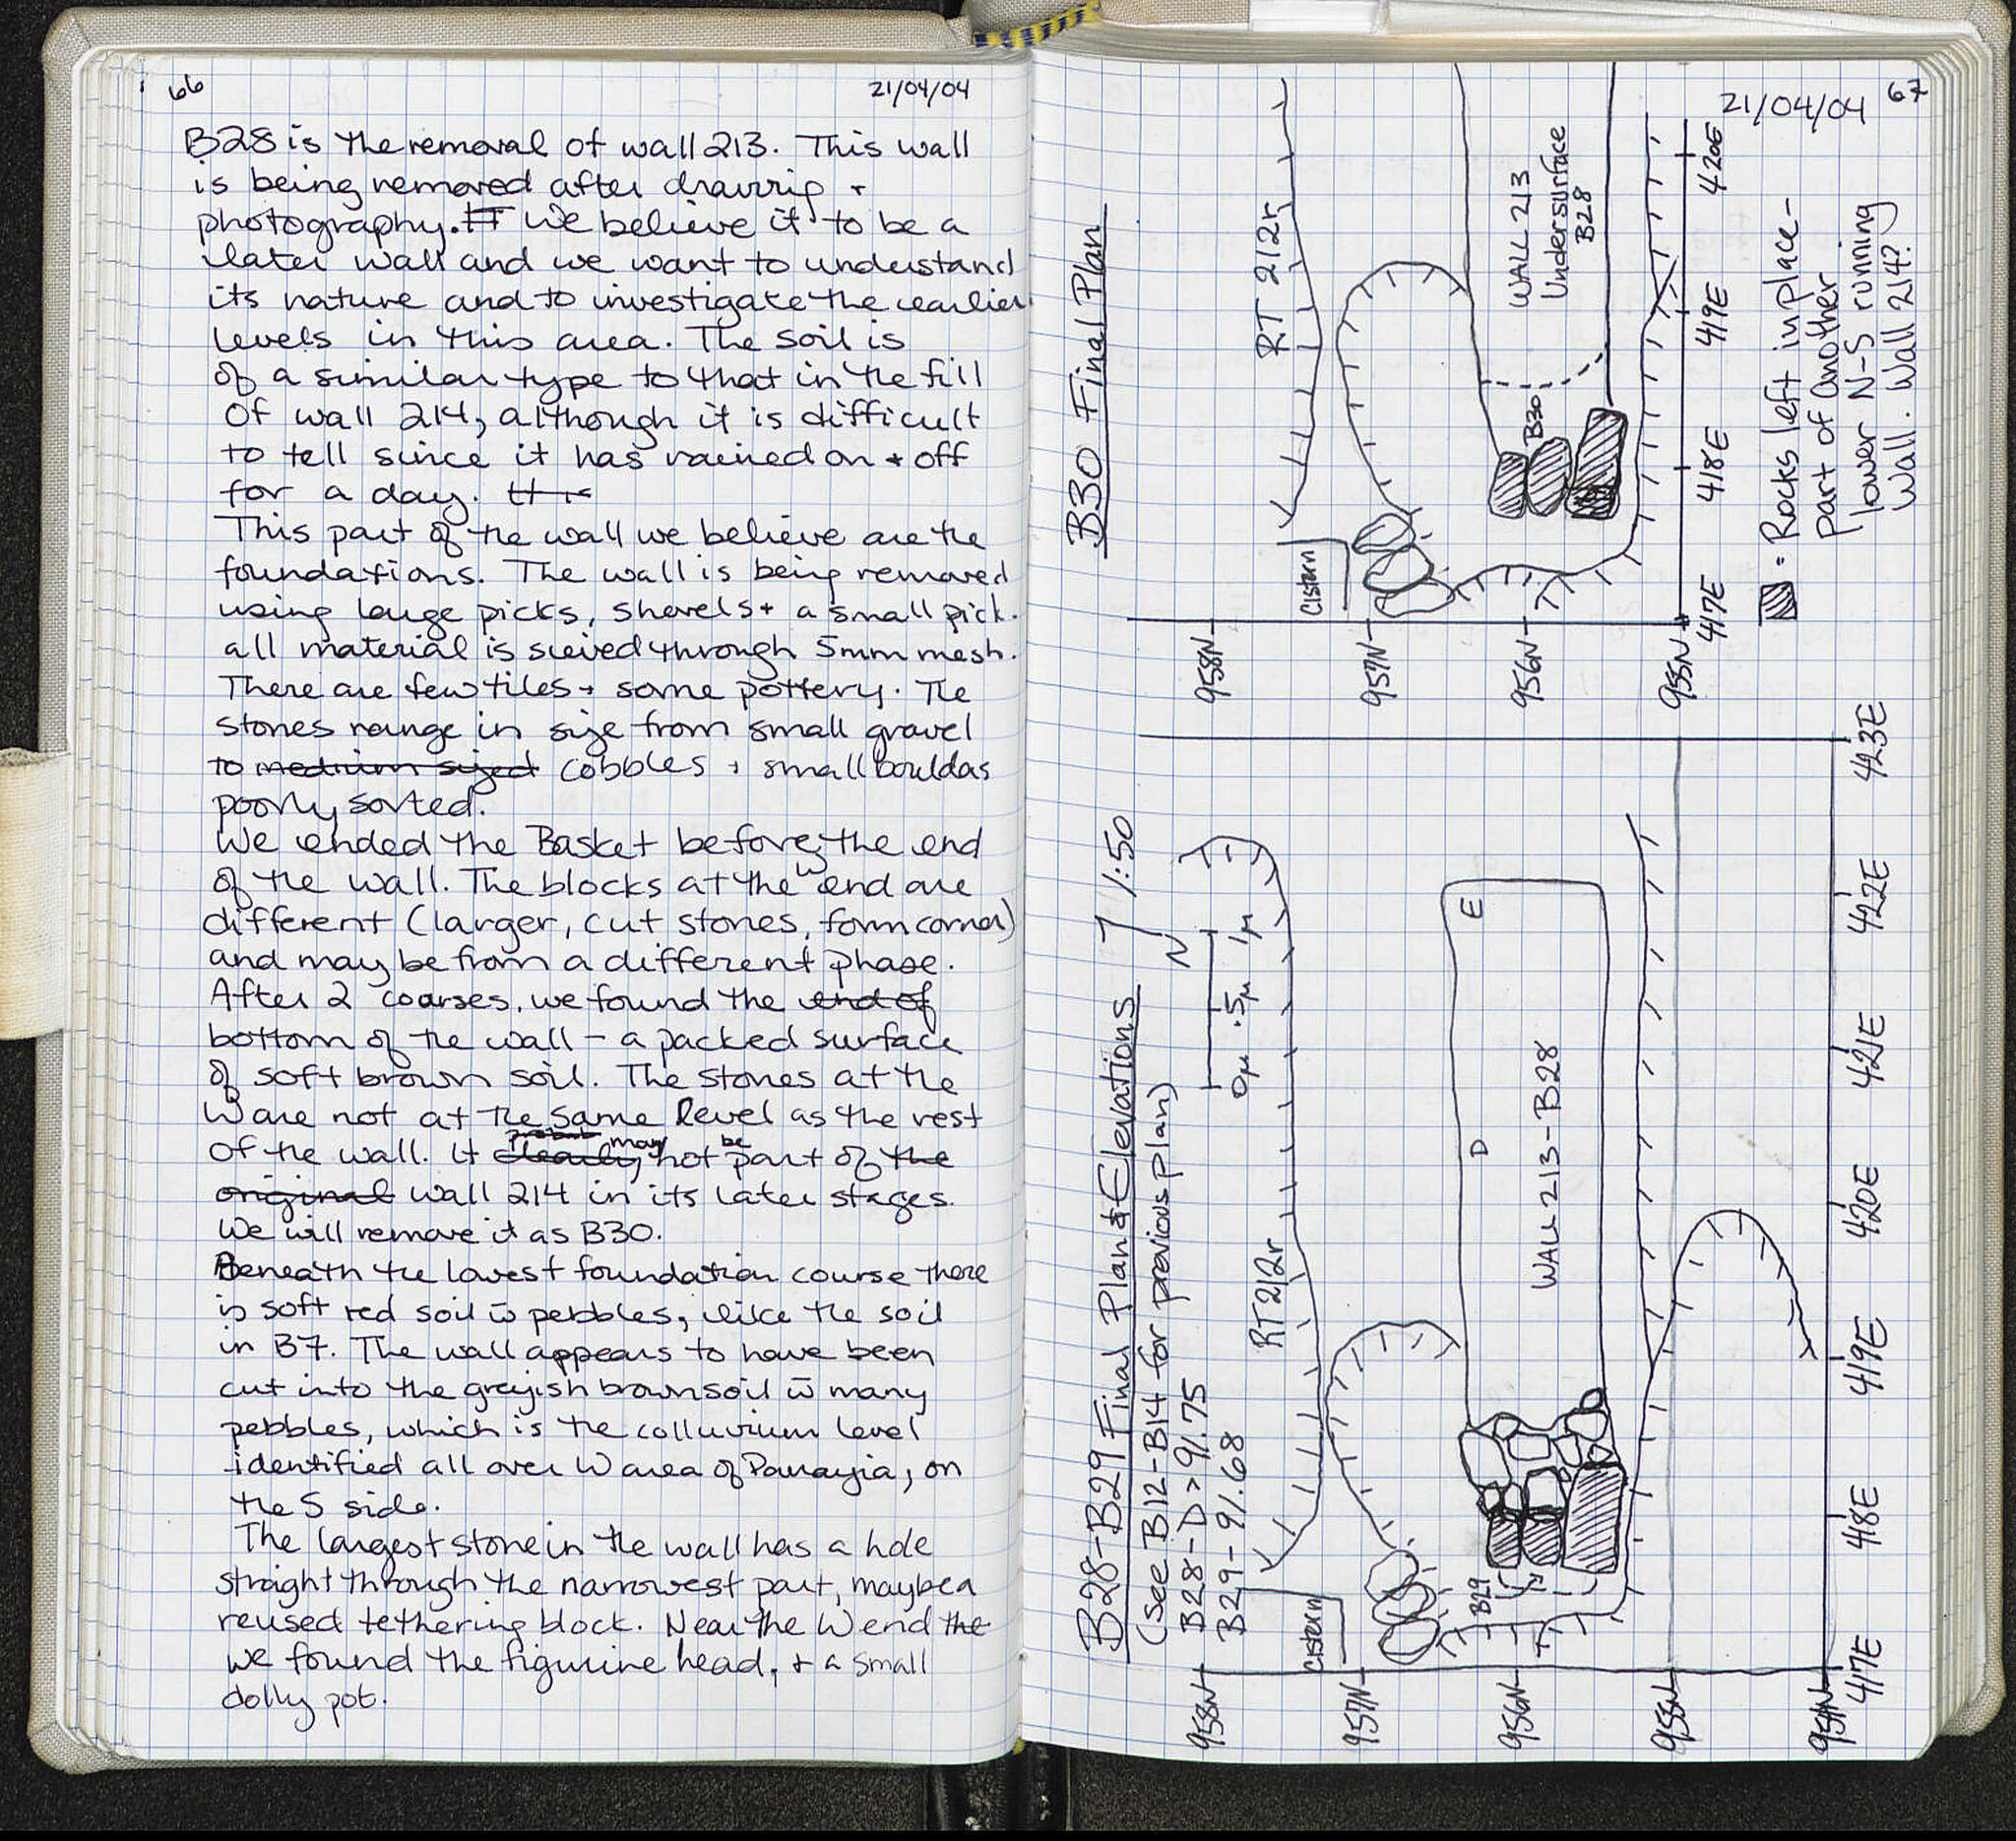 66
21/04/04
B28 is the removal of wall 213. This wall
is being removed after drawing +
photography. It We believe it to be a
later wall and we want to understand
its nature and to investigate the earlier
levels in this area. The soil is
of a similar type to that in the fill
of wall 214, although it is difficult
to tell since it has rained on + off
for a day.
This part of the wall we believe are the
foundations. The wall is being removed
using large picks, shovels + a small pick.
all material is sieved through 5mm mesh.
There are few tiles + some pottery. The
stones range in size from small gravel
to medium sized cobbles + small bouldas
poorly sorted.
We ended the Basket before the end
of the wall. The blocks at the W end are
different (larger, cut stones, form corner)
and may be from a different phase.
After 2 coarses, we found the end of
bottom of the wall - a packed surface
of soft brown soil. The stones at the
W are not at the same level as the rest
of the wall. It clearly may not be part of the
original wall 214 in its later stages.
We will remove it as B30.
Beneath the lowest foundation course there
is soft red soil w̄ pebbles, like the soil
in B7. The wall appears to have been
cut into the greyish brown soil w̄ many
pebbles, which is the colluvium level
identified all over W area of Panayia, on
the S side.
The largest stone in the wall has a hole
straight through the narrowest part, maybe a
reused tethering block. Near the W end the
we found the figurine head, + a small
dolly pot.
21/04/04
67
B30 Final Plan
RT 212r
WALL 213
Undersurface
B28
B30
Cistern
958N
957N
956N
955N
417E
418E
419E
420E
= Rocks left in place -
part of another
lower N-S running
wall. Wall 214?
B28-B29 Final Plan & Elevations
1:50
(see B12-B14 for previous plan)
B28-D > 91.75
B29 - 91.68
N
0m .5m 1m
RT 212r
E
D
WALL 213-B28
B29
Cistern
958N
957N
956N
955N
954N
417E
418E
419E
420E
421E
422E
423E